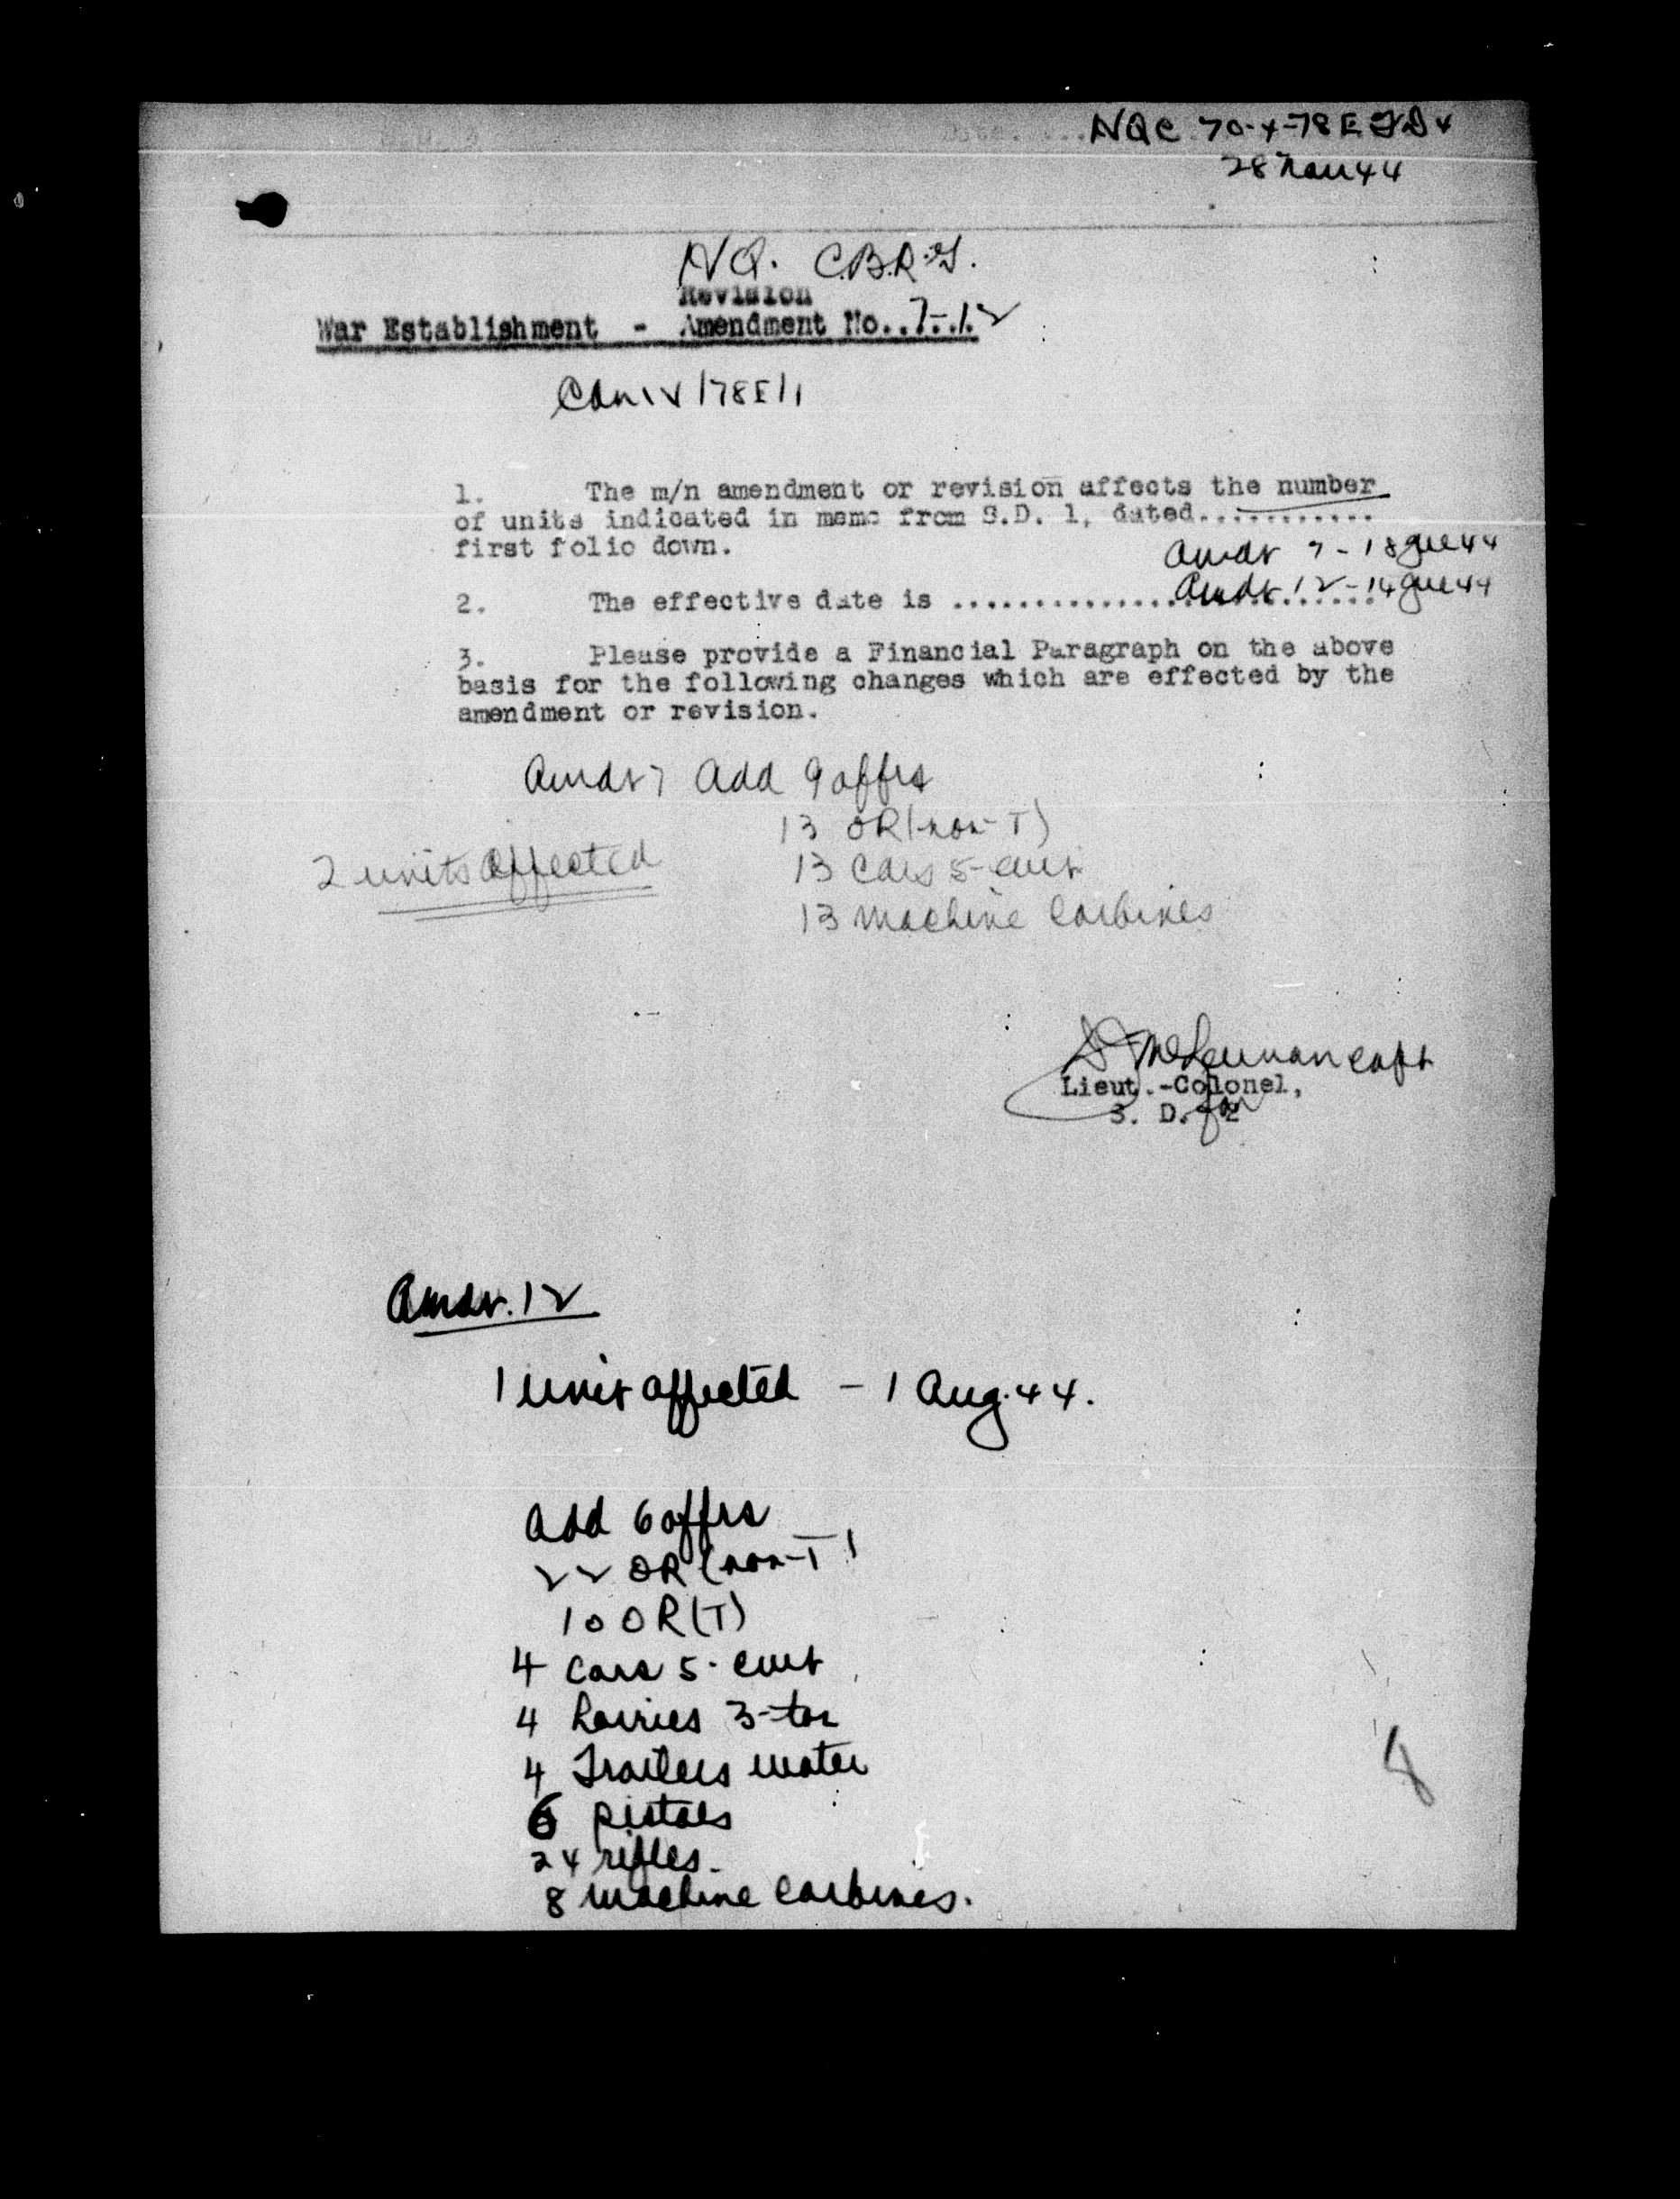 HQC 70-4-78E FD 4
28 Nov 44
HQ. C.B.R.G.
Revision
War Establishment - Amendment No..7-12
Cdn IV/78E/1
1. The m/n amendment or revision affects the number
of units indicated in memo from S.D. 1, dated...........
first folio down.
Amdt 7 - 18 Jul 44
2. The effective date is .......................... Amdt 12 - 14 Jul 44
3. Please provide a Financial Paragraph on the above
basis for the following changes which are effected by the
amendment or revision.
Amdt 7 Add 9 offrs
13 OR (non-T)
2 units affected
13 Cars 5-cwt
13 Machine Carbines
Capt
Lieut.-Colonel,
for
S. D. 2
Amdt. 12
1 Unit affected - 1 Aug. 44.
Add 6 offrs
22 OR (non-T)
10 OR (T)
4 Cars 5-cwt
4 Lorries 3-ton
4 Trailers water
6 pistols
24 rifles.
8 Machine Carbines.
8